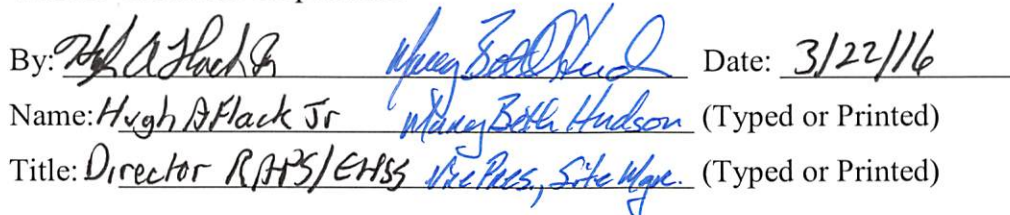 By: Hugh A Flack Jr Mary Beth Hudson Date: 3/22/16
Name: Hugh A Flack Jr Mary Beth Hudson (Typed or Printed)
Title: Director RAPS/EHSS Vice Pres., Site Mgr. (Typed or Printed)